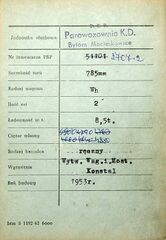 Jednostka służbowa
Parowozownia K.D.
Bytom Maciejkowice
Nr inwentarza PKP 51404 2707-2
Szerokość toru 785mm
Rodzaj wagonu Wh
Ilość osi 2
Ładowność w t. 8,5t.
Ciężar własny
Rodzaj hamulca ręczny
Wytwórnia Wytw. Wag.i Most.
Konstal
Rok budowy 1953r.